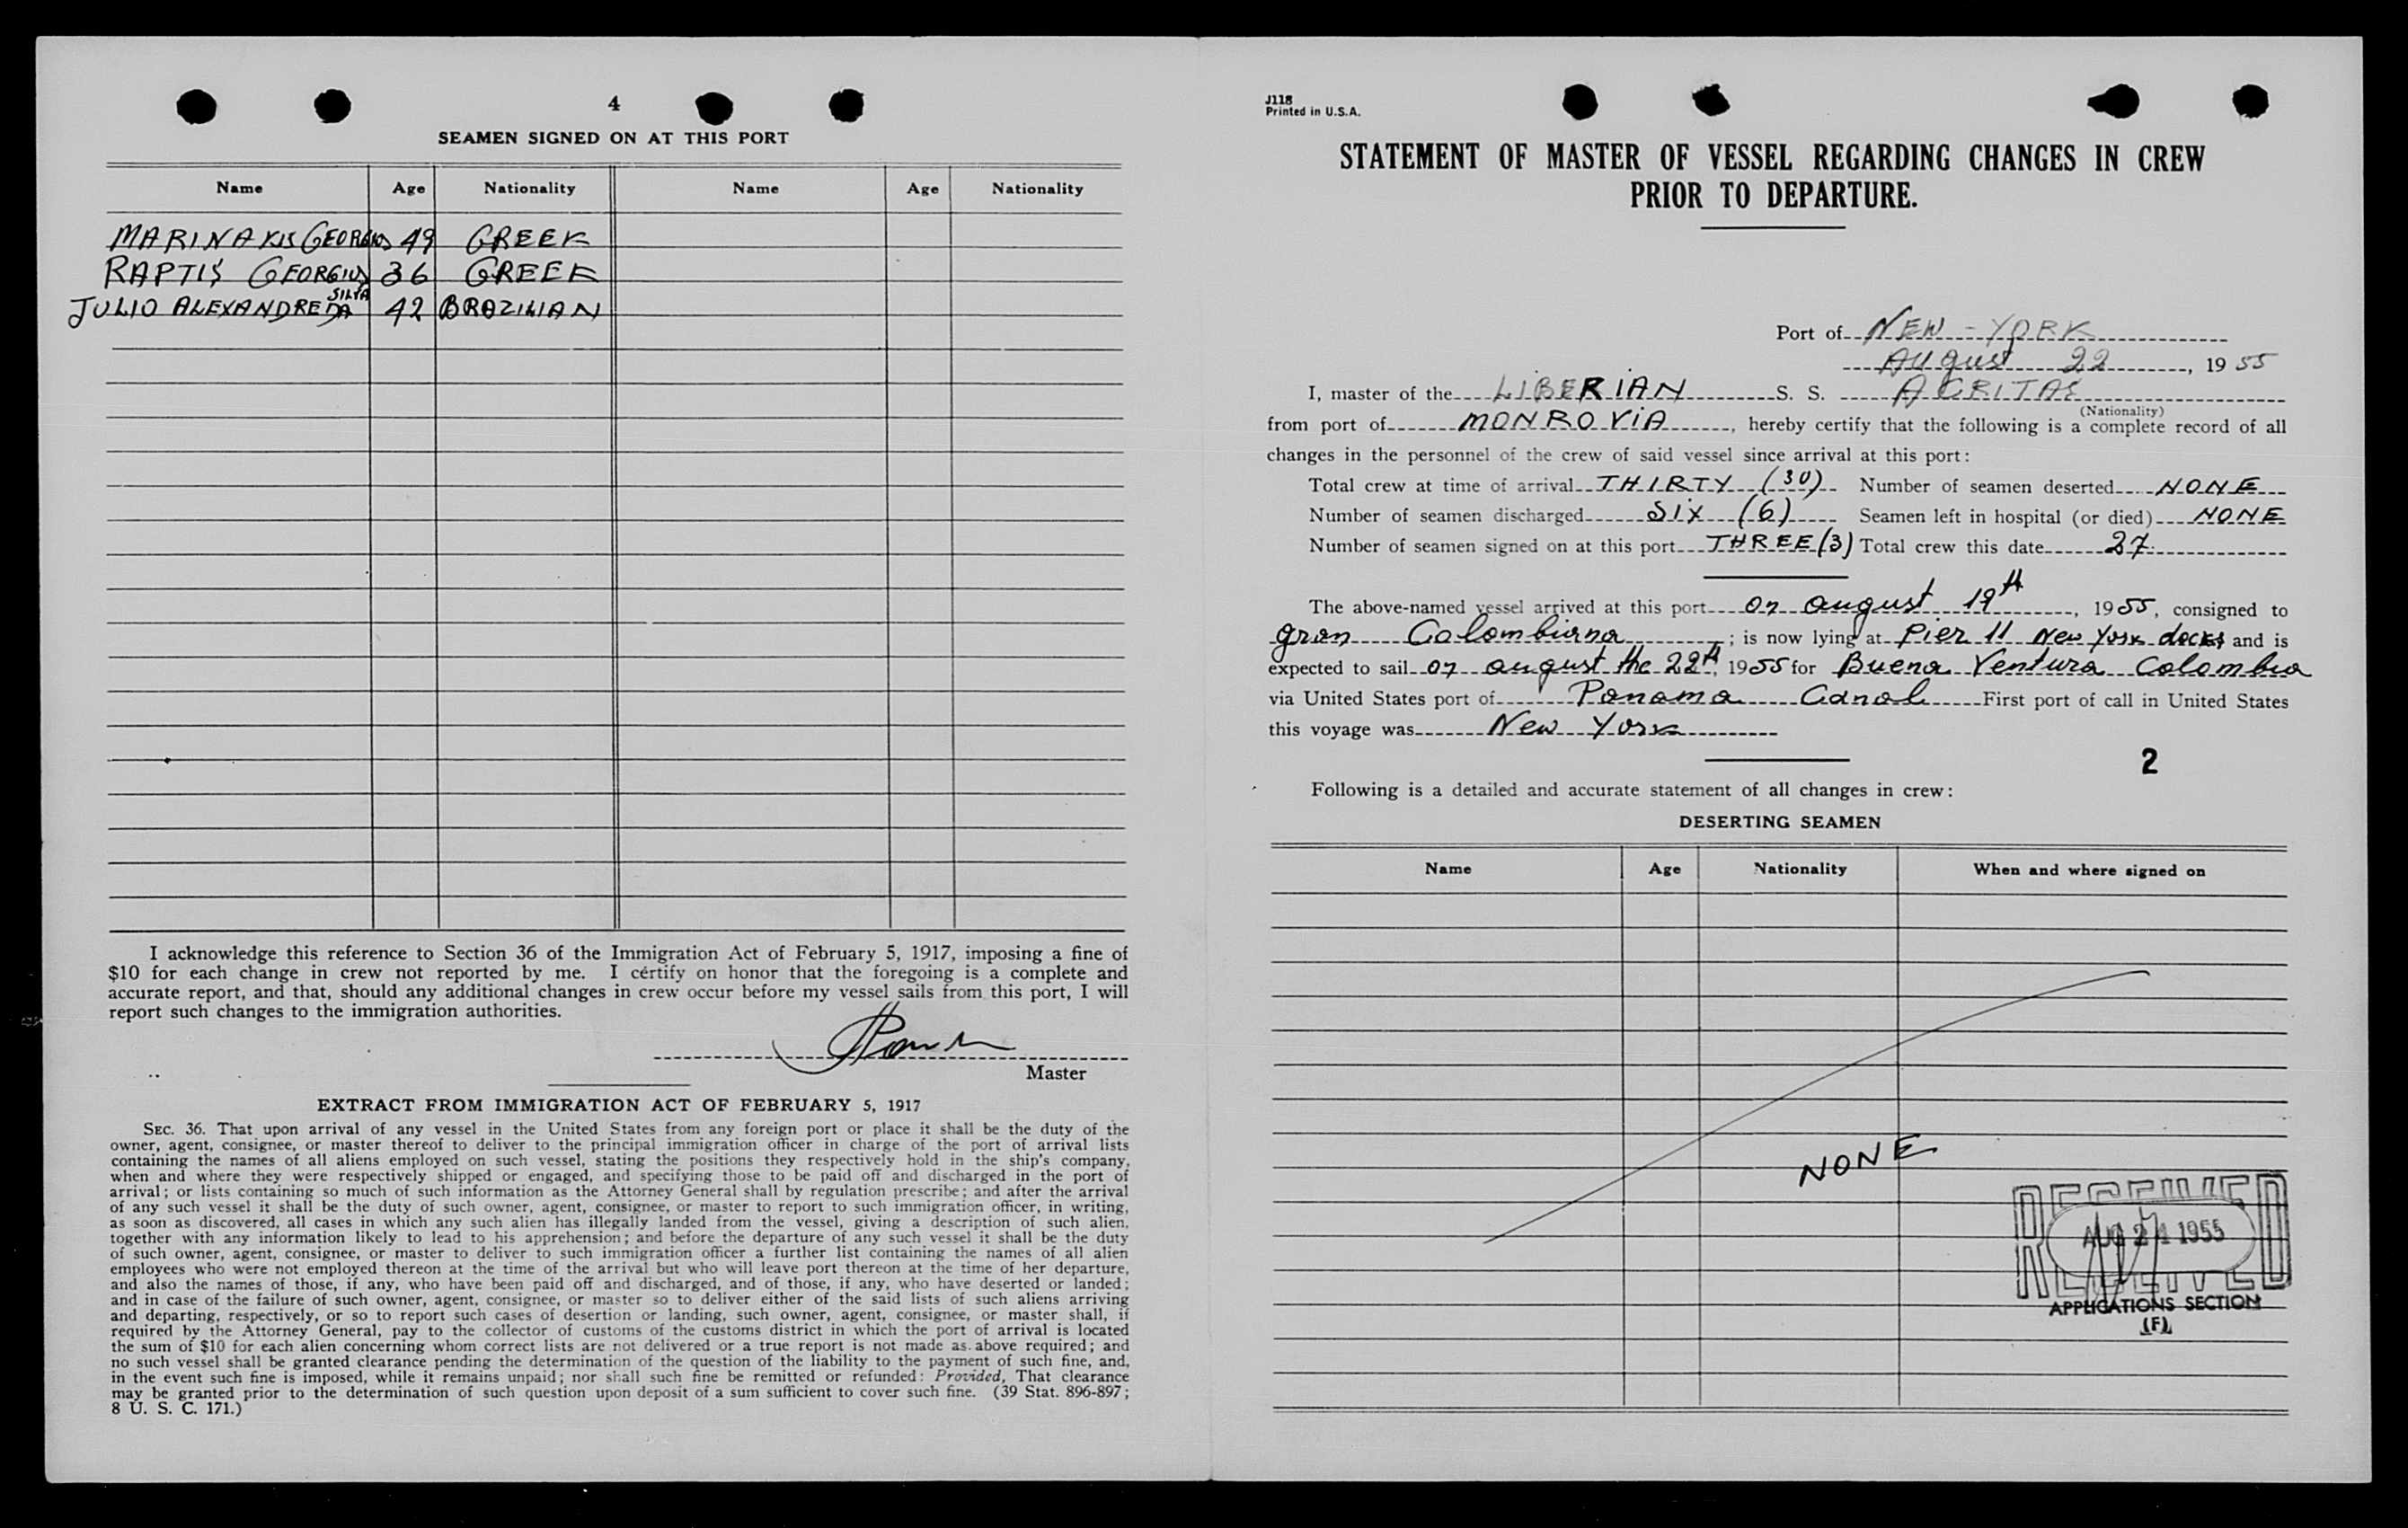 4
SEAMEN SIGNED ON AT THIS PORT
Name Age Nationality Name Age Nationality
MARINAKIS GEORGIOS 49 GREEK
RAPTIS GEORGIUS 36 GREEK
JULIO ALEXANDRE DA SILVA 42 BRAZILIAN
I acknowledge this reference to Section 36 of the Immigration Act of February 5, 1917, imposing a fine of
$10 for each change in crew not reported by me. I certify on honor that the foregoing is a complete and
accurate report, and that, should any additional changes in crew occur before my vessel sails from this port, I will
report such changes to the immigration authorities.
Master
EXTRACT FROM IMMIGRATION ACT OF FEBRUARY 5, 1917
SEC. 36. That upon arrival of any vessel in the United States from any foreign port or place it shall be the duty of the
owner, agent, consignee, or master thereof to deliver to the principal immigration officer in charge of the port of arrival lists
containing the names of all aliens employed on such vessel, stating the positions they respectively hold in the ship's company,
when and where they were respectively shipped or engaged, and specifying those to be paid off and discharged in the port of
arrival; or lists containing so much of such information as the Attorney General shall by regulation prescribe; and after the arrival
of any such vessel it shall be the duty of such owner, agent, consignee, or master to report to such immigration officer, in writing,
as soon as discovered, all cases in which any such alien has illegally landed from the vessel, giving a description of such alien,
together with any information likely to lead to his apprehension; and before the departure of any such vessel it shall be the duty
of such owner, agent, consignee, or master to deliver to such immigration officer a further list containing the names of all alien
employees who were not employed thereon at the time of the arrival but who will leave port thereon at the time of her departure,
and also the names of those, if any, who have been paid off and discharged, and of those, if any, who have deserted or landed;
and in case of the failure of such owner, agent, consignee, or master so to deliver either of the said lists of such aliens arriving
and departing, respectively, or so to report such cases of desertion or landing, such owner, agent, consignee, or master shall, if
required by the Attorney General, pay to the collector of customs of the customs district in which the port of arrival is located
the sum of $10 for each alien concerning whom correct lists are not delivered or a true report is not made as above required; and
no such vessel shall be granted clearance pending the determination of the question of the liability to the payment of such fine, and,
in the event such fine is imposed, while it remains unpaid; nor shall such fine be remitted or refunded: Provided, That clearance
may be granted prior to the determination of such question upon deposit of a sum sufficient to cover such fine. (39 Stat. 896-897;
8 U. S. C. 171.)
J118
Printed in U.S.A.
STATEMENT OF MASTER OF VESSEL REGARDING CHANGES IN CREW
PRIOR TO DEPARTURE.
Port of NEW-YORK
August 22, 1955
I, master of the LIBERIAN S. S. AGRITAS
(Nationality)
from port of MONROVIA, hereby certify that the following is a complete record of all
changes in the personnel of the crew of said vessel since arrival at this port:
Total crew at time of arrival THIRTY (30) Number of seamen deserted NONE
Number of seamen discharged SIX (6) Seamen left in hospital (or died) NONE
Number of seamen signed on at this port THREE (3) Total crew this date 27
The above-named vessel arrived at this port on august 19th, 1955, consigned to
gran Colombiana; is now lying at Pier 11 New York docks and is
expected to sail on august the 22th, 1955 for Buena Ventura Colombia
via United States port of Panama Canal First port of call in United States
this voyage was New York
2
Following is a detailed and accurate statement of all changes in crew:
DESERTING SEAMEN
Name Age Nationality When and where signed on
NONE
RECEIVED
AUG 24 1955
RECEIVED
APPLICATIONS SECTION
(F)